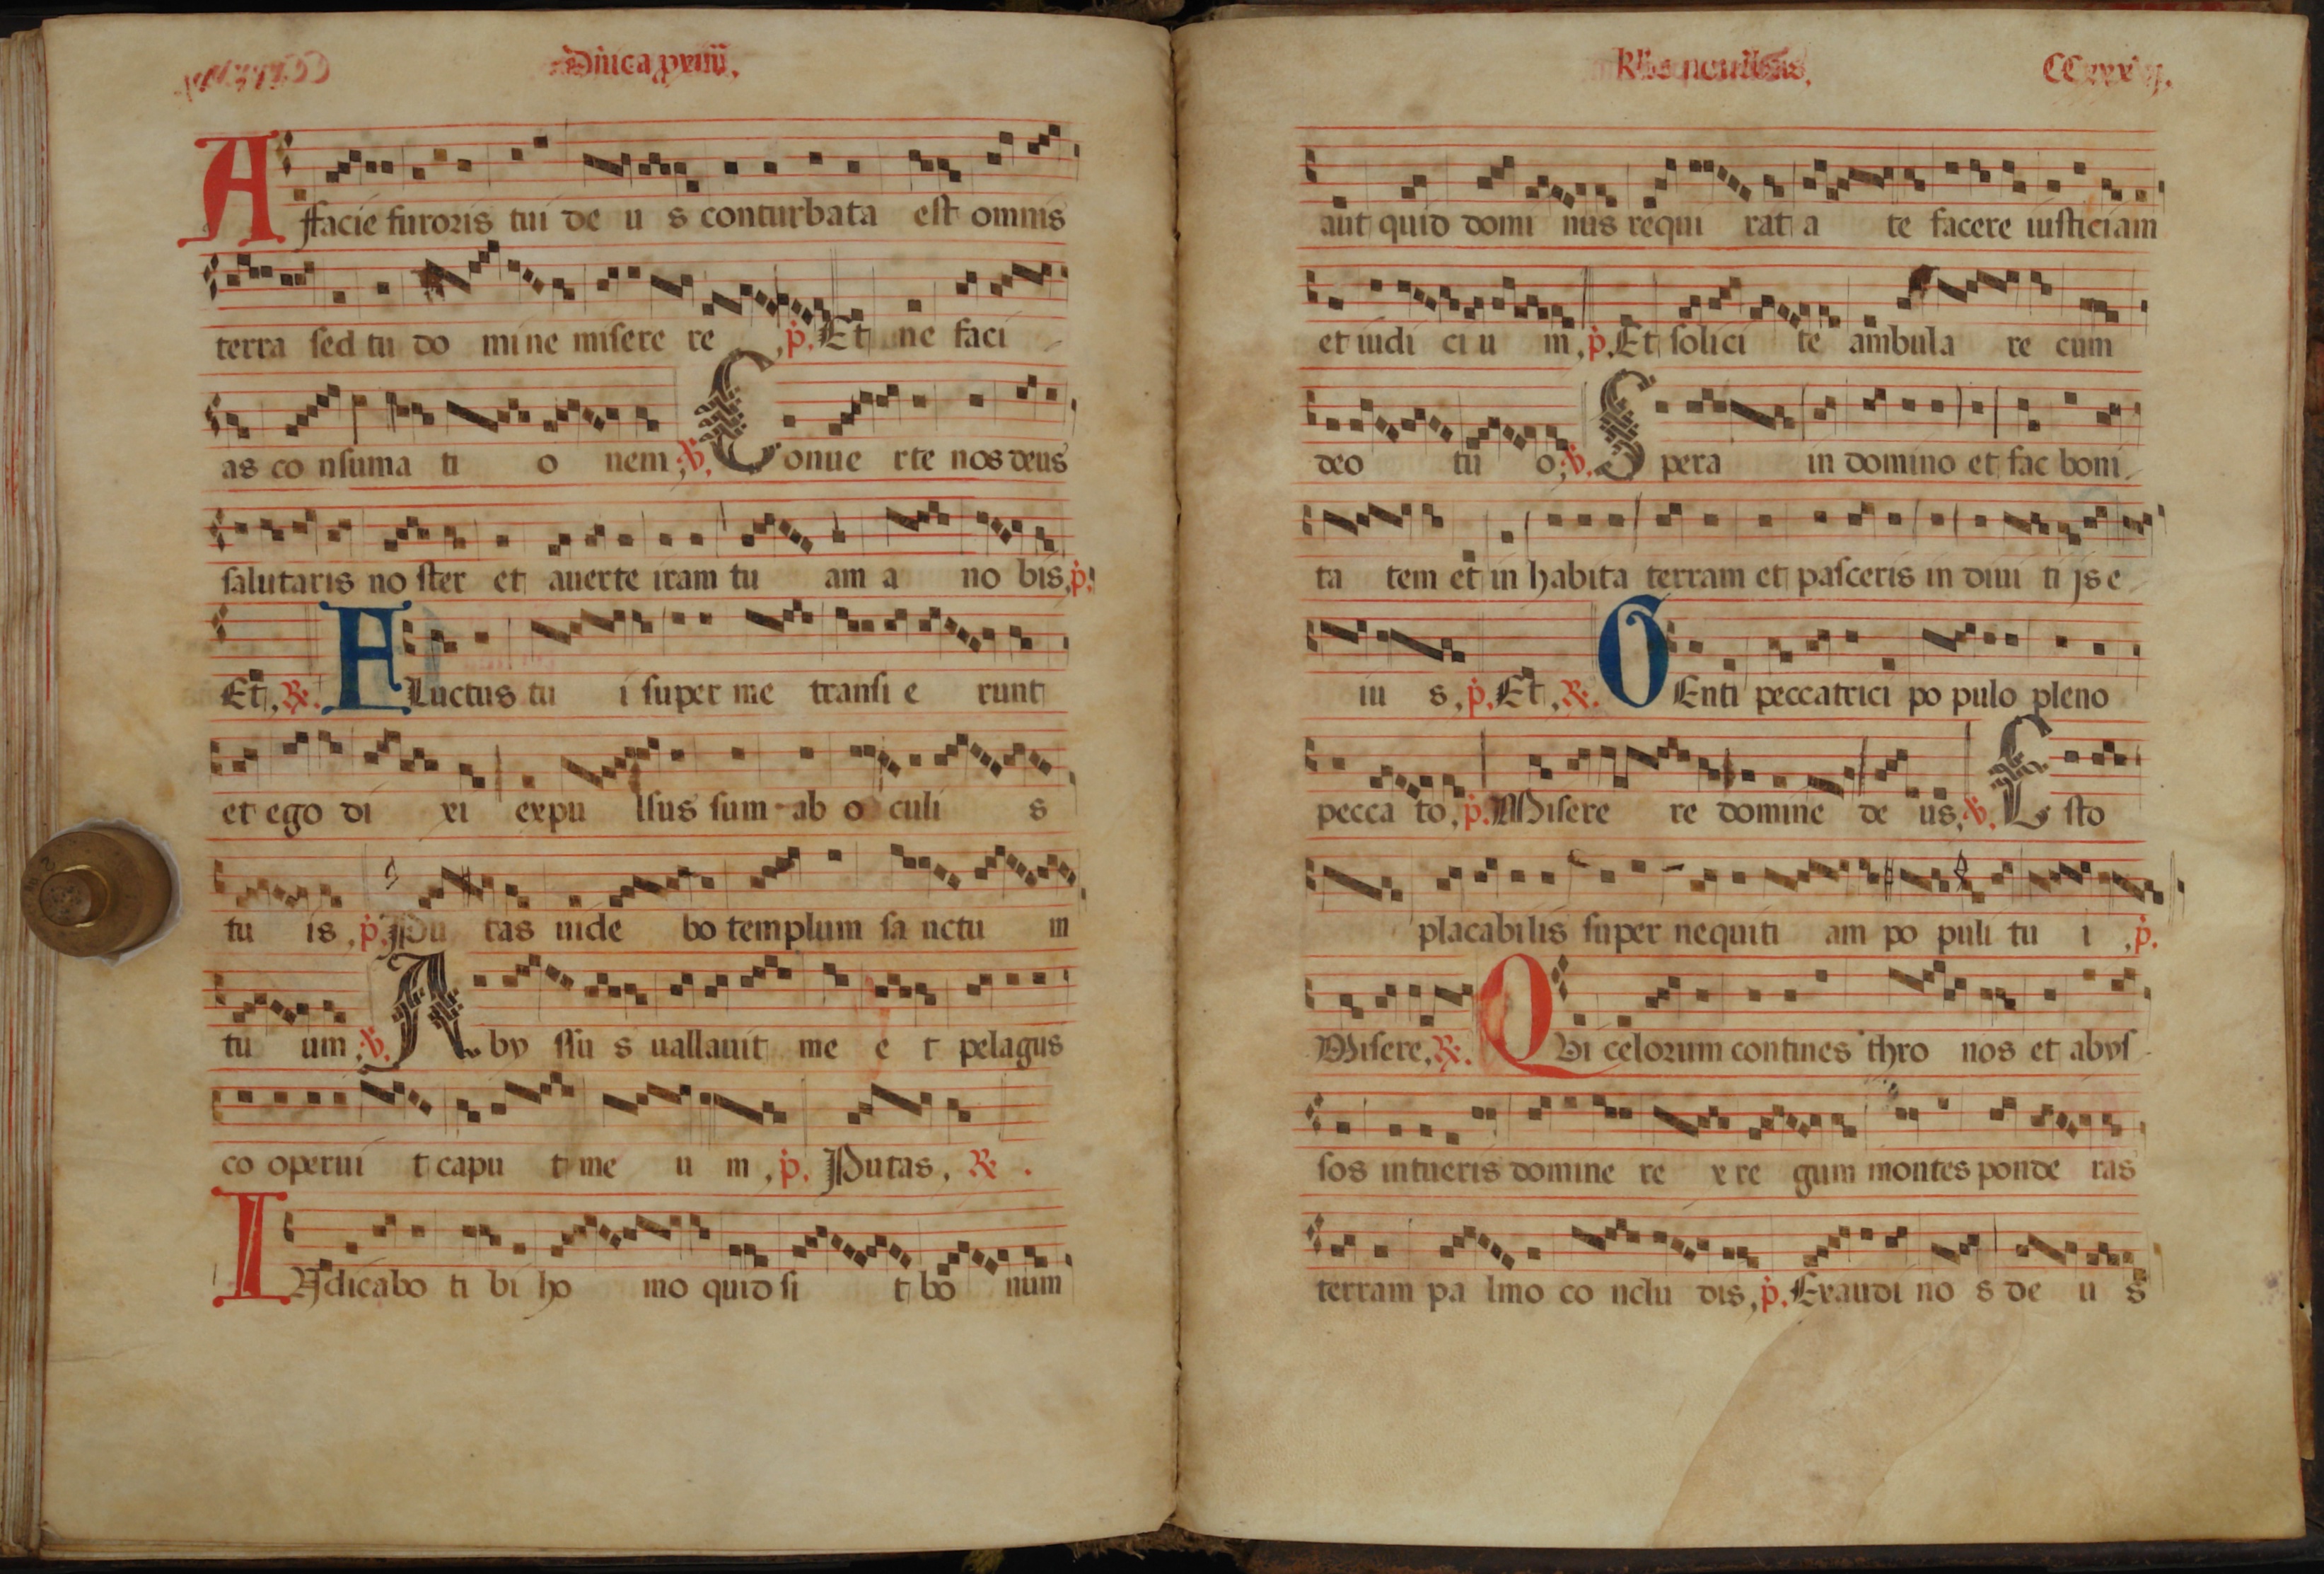 Dnica xviiii.
A ffacie furoris tui de u s conturbata est omnis
terra sed tu do mi ne misere re , p. Et ne faci
as co nsuma ti o nem ; v. Conue rte nos deus
salutaris no ster et auerte iram tu am a no bis, p.
Et, R. FLuctus tu i super me transi e runt
et ego di xi expu lsus sum ab o culi s
tu is , p. Pu tas uide bo templum sa nctu m
tu um ; v. A by ssu s uallauit me e t pelagus
co operui t capu t me u m , p. Putas, R .
INdicabo ti bi ho mo quid si t bo num
CCxxx
aut quid domi nus requi rat a te facere iusticiam
et iudi ci u m, p. Et solici te ambula re cum
deo tu o; v. S pera in domino et fac boni
ta tem et in habita terram et pasceris in diui ti js e
iu s, p. Et, R. GEnti peccatrici po pulo pleno
pecca to, p. Misere re domine de us, v. E sto
placabilis super nequiti am po puli tu i , p.
Misere, R. QVi celorum contines thro nos et abys
sos intueris domine re x re gum montes ponde ras
terram pa lmo co nclu dis, p. Exaudi no s de u s